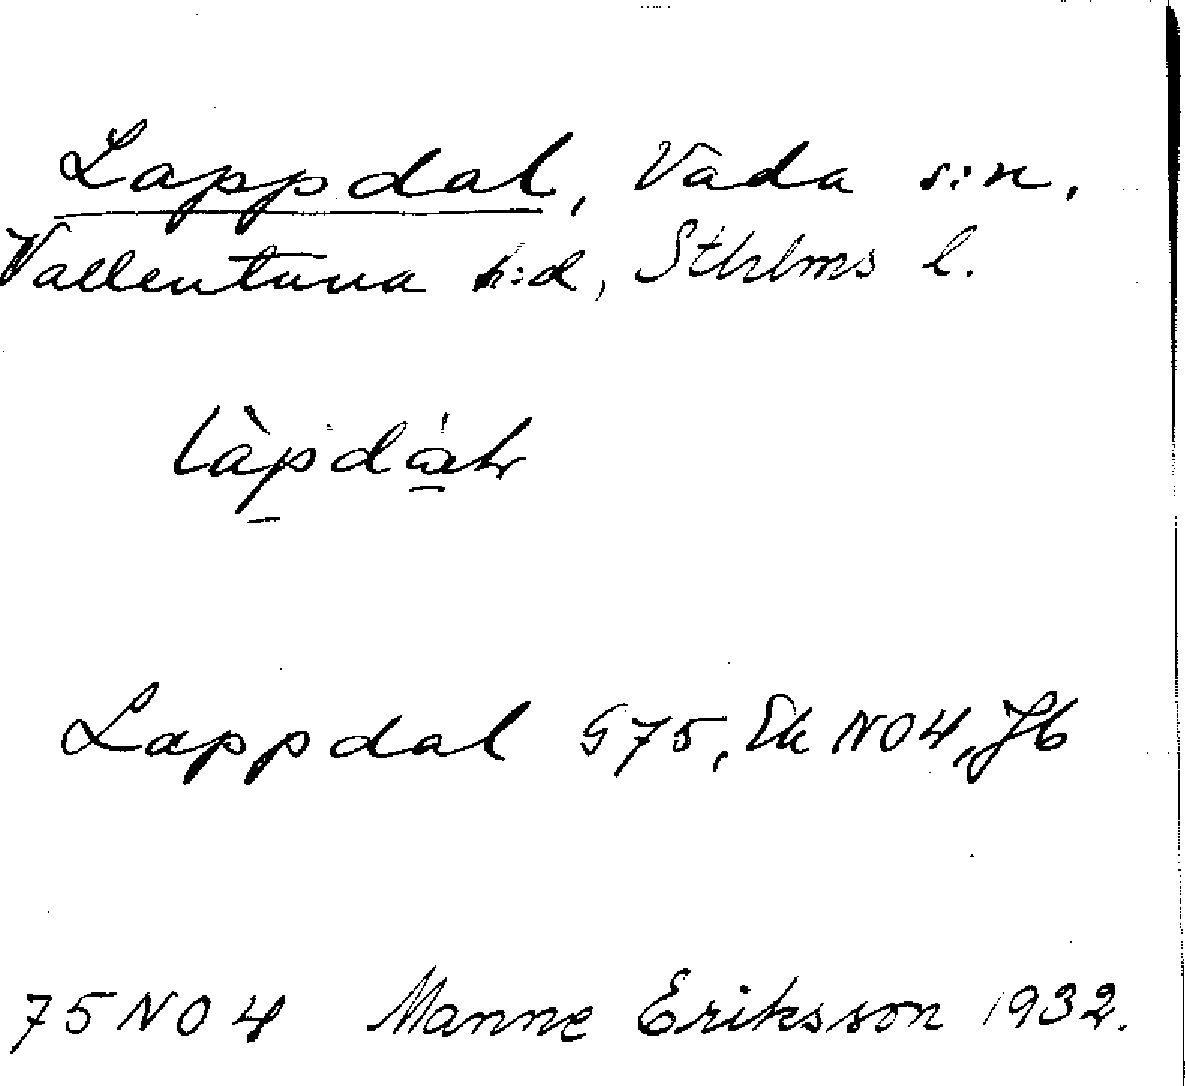 Lappdal, Vada s:n,
Vallentuna h:d, Sthlms l.
Lappdal G 75, Ek NO4, Jb
75 NO 4 Manne Eriksson 1932.